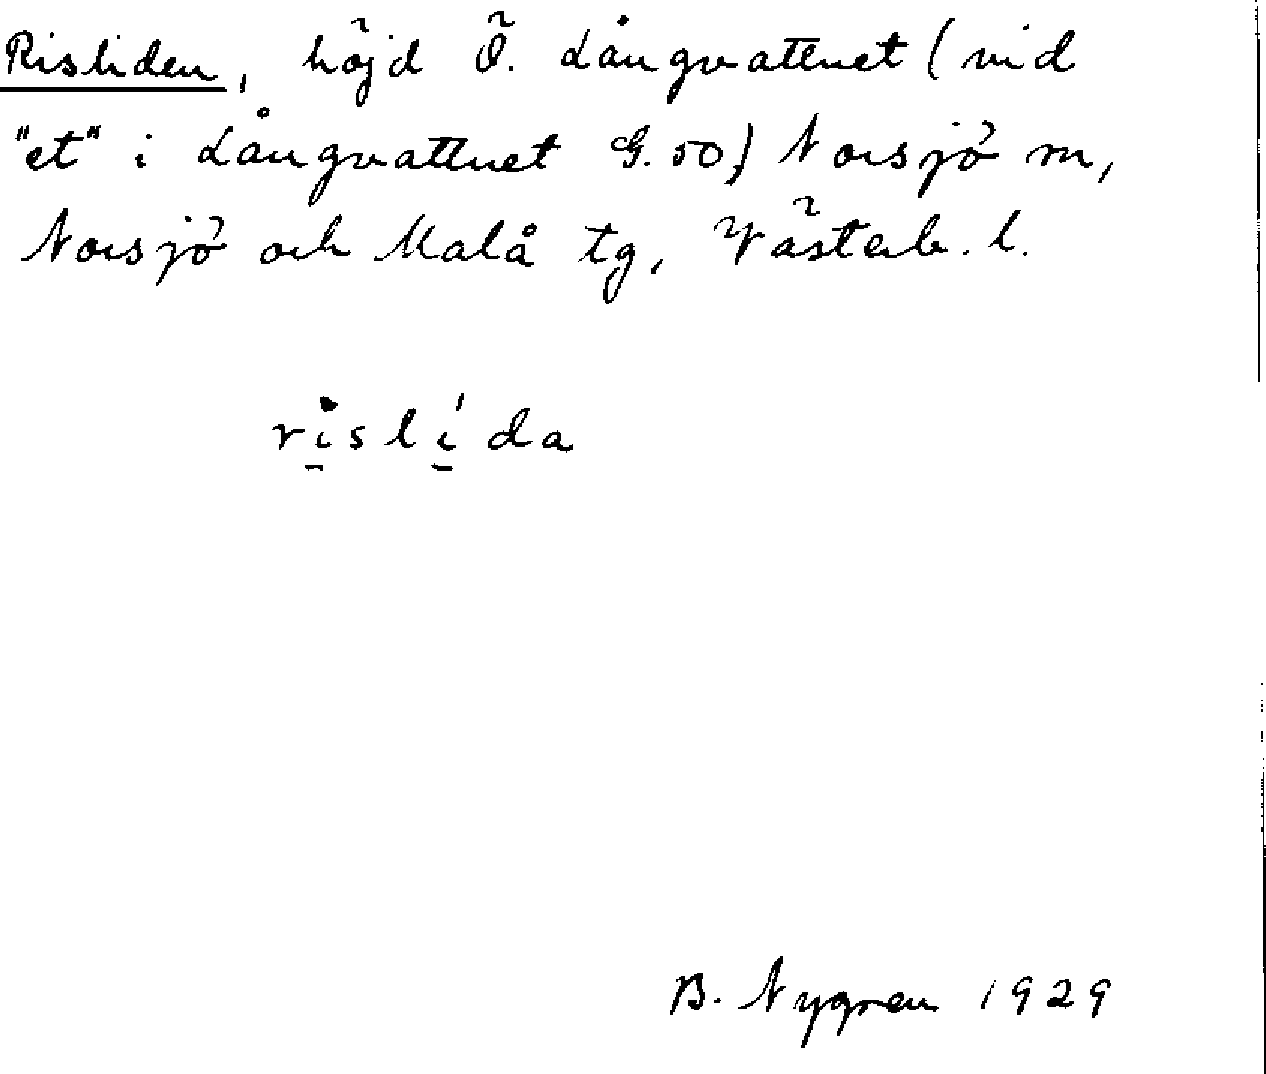 Risliden, höjd Ö. Långvattnet (vid
"et" i Långvattnet G.50) Norsjö sn,
Norsjö och Malå tg, Västerb. l.
ri̱slí̱da
B. Nygren 1929